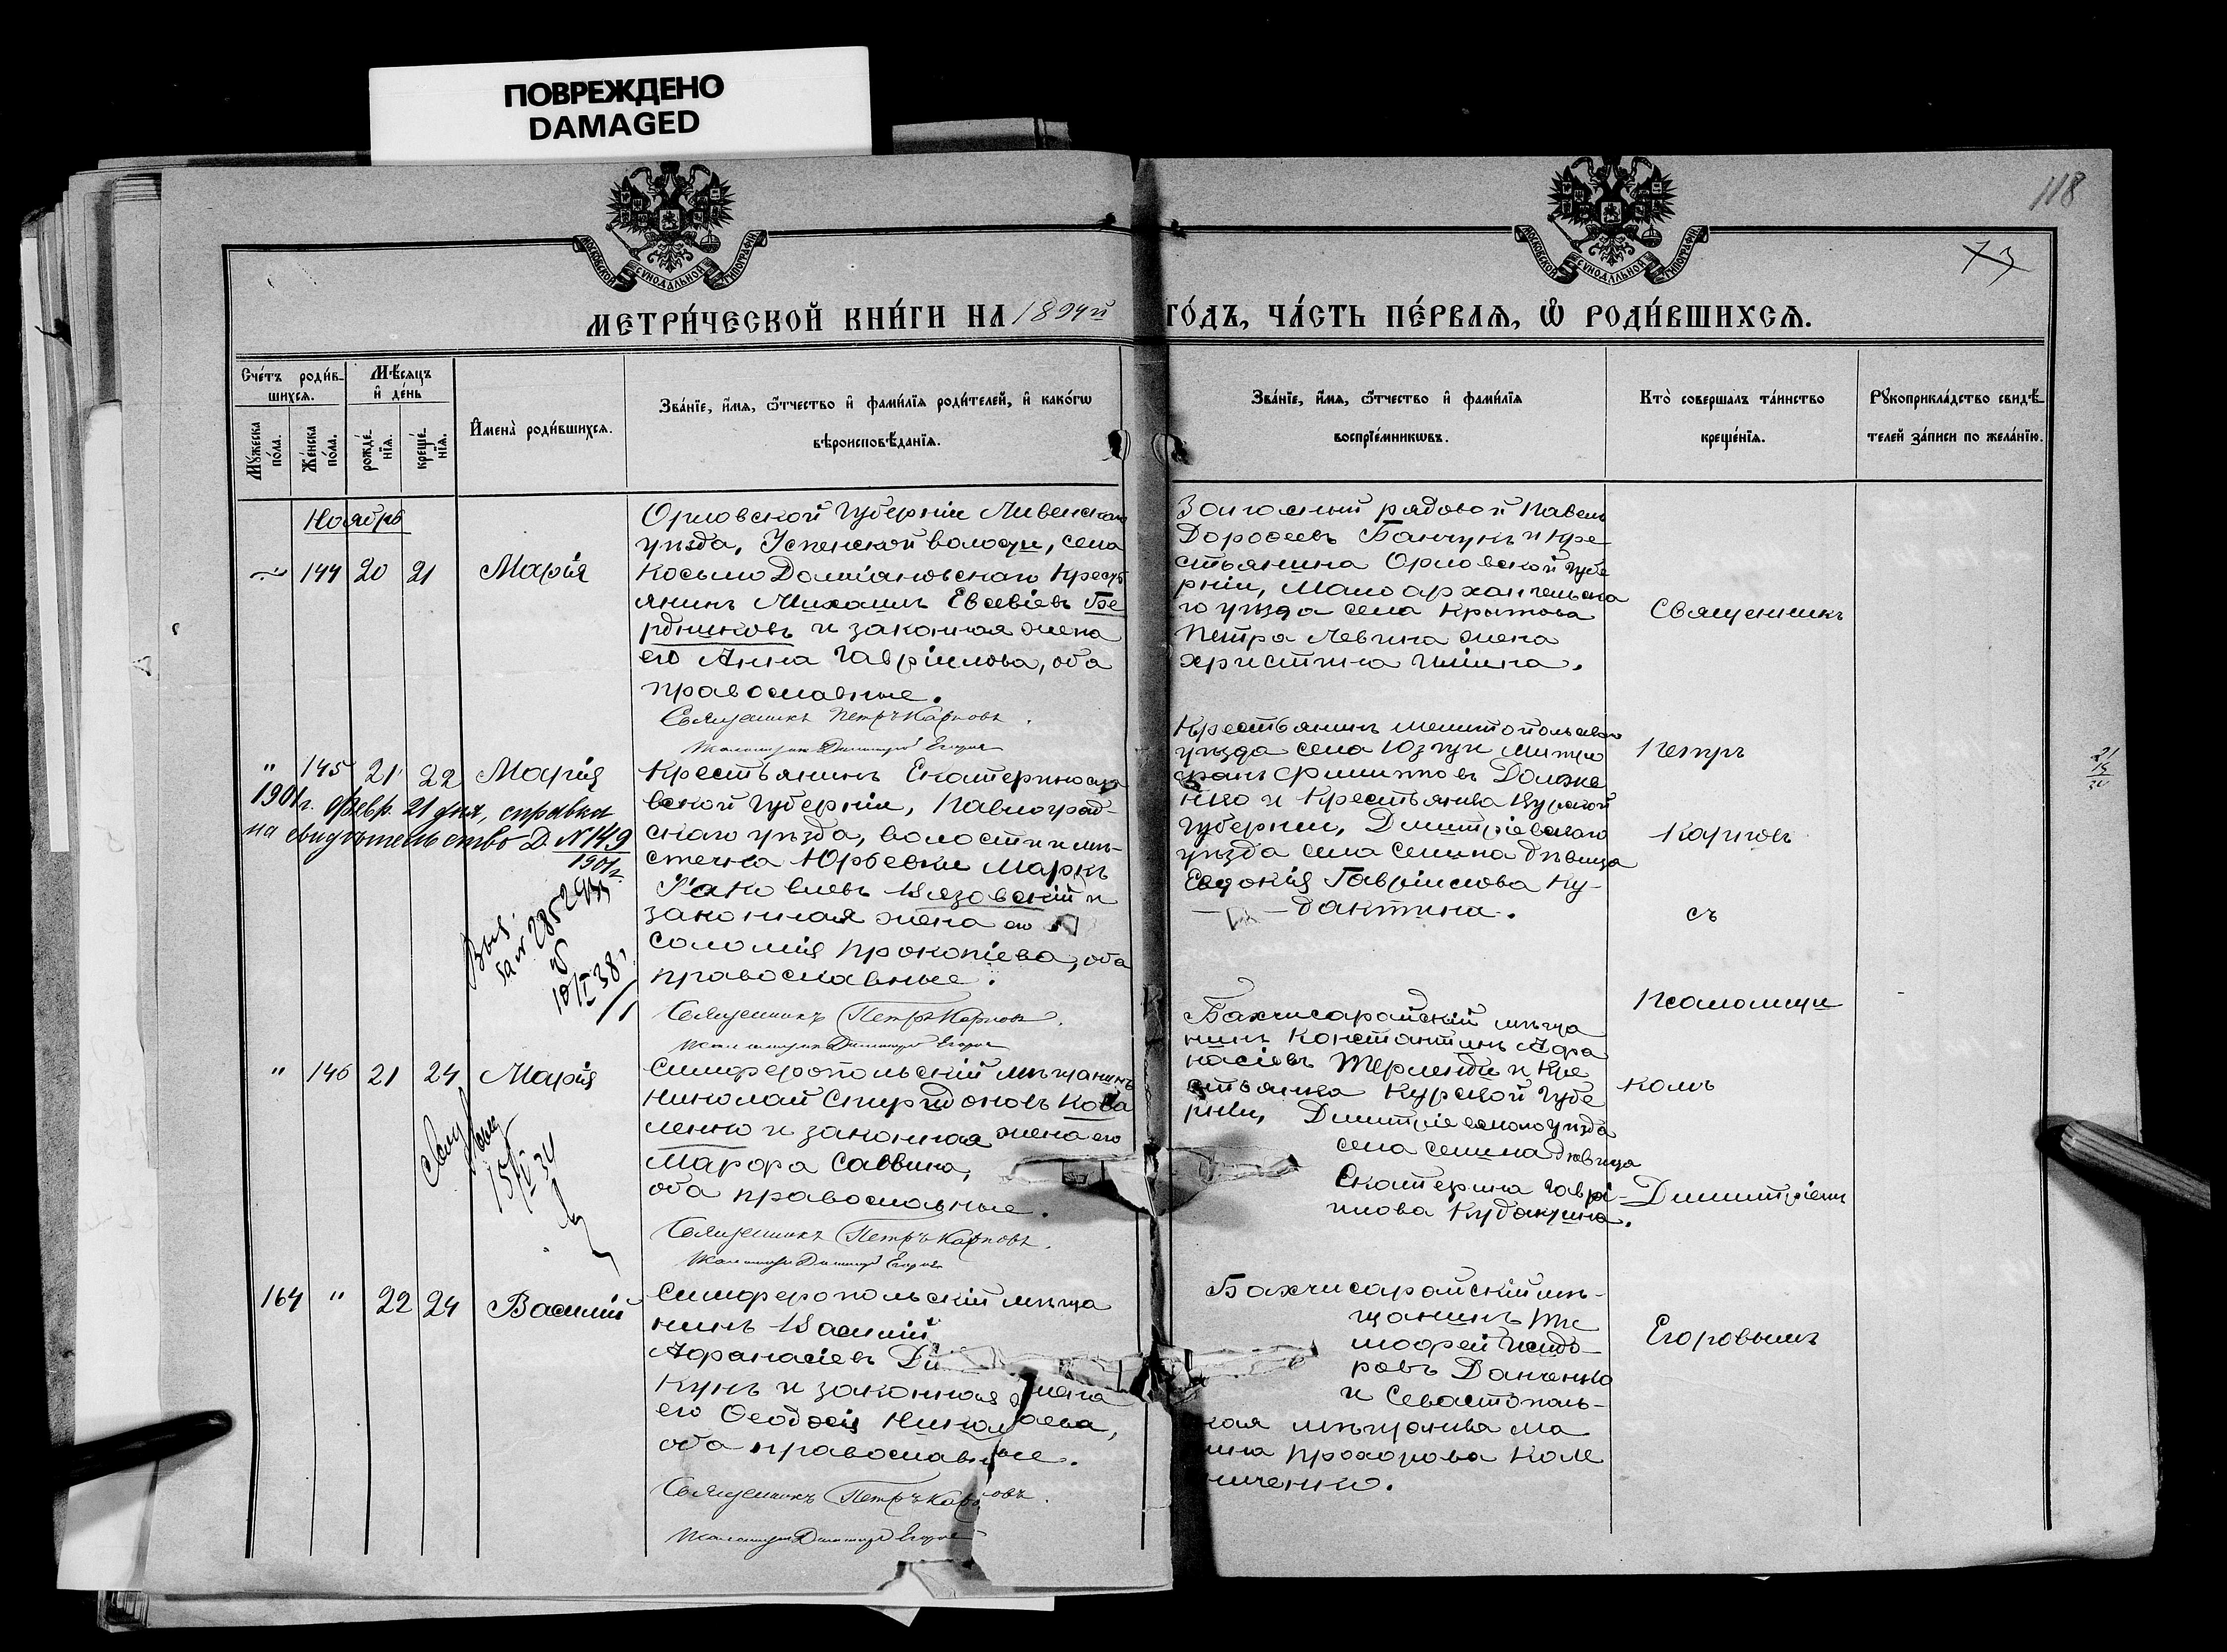 ПОВРЕЖДЕНО
DAMAGED
118
73
МОСКОВСКОЙ СѴНОДАЛЬНОЙ ТИПОГРАФІИ
МОСКОВСКОЙ СѴНОДАЛЬНОЙ ТИПОГРАФІИ
МЕТРИ́ЧЕСКОЙ КНИ́ГИ НА 1894й ГО́ДЪ, ЧА́СТЬ ПЕ́РВАѦ, Ѡ҆ РОДИ́ВШИХСѦ.
Сче́тъ роди́вшихсѧ.
Мꙋ́жеска по́ла.
Же́нска по́ла.
Мѣ́сѧцъ и҆ де́нь
рожде́нїѧ.
креще́нїѧ.
И҆мена̀ роди́вшихсѧ.
Зва́нїе, и҆́мѧ, ѻ҆́тчество и҆ фами́лїѧ роди́телей, и҆ како́гѡ
вѣроисповѣ́данїѧ.
Зва́нїе, и҆́мѧ, ѻ҆́тчество и҆ фами́лїѧ
воспрїе́мникѡвъ.
Кто̀ соверша́лъ та́инство
креще́нїѧ.
Рꙋкоприкла́дство свидѣ́телей за́писи по жела́нїю.
Ноябрь
144 20 21 Марія
Орловской губерніи Ливенскаго
уѣзда, Успенской волости, села
Косьмо Доміановскаго Кресть
янинъ Михаилъ Евсевіевъ Бе
рдниковъ и законная жена
его Анна Гавріилова, оба
православные.
Священникъ Петръ Карповъ.
Псаломщикъ Димитрій Егоровъ
Запасный рядовой Павелъ
Дорофеевъ Банчукъ и Кре
стьянина Орловской губе
рніи, Малоархангельска
го уѣзда села Крытова
Петра Левина жена
Христина Ильина.
" 145 21 22 Марія
1901 г. февр. 21 дня, справка
на свидѣтельство Д. № 149
1901 г.
Крестьянинъ Екатеринослав
вской губерніи, Павлоград-
скаго уѣзда, волости и мѣ-
стечка Юрьевки Маркъ
Іаковлевъ Вязовскій и
законная жена его
Соломія Прокопіева, оба
православные.
Священникъ Петръ Карповъ.
Псаломщикъ Димитрій Егоровъ
10/I 38 г.
Крестьянинъ Мелитопольскаго
уѣзда села Юзкуи Митро
фанъ Филипповъ Должен
нко и Крестьянка Курской
губерніи, Димитріевскаго
уѣзда села Селина дѣвица
Евдокія Гавріилова Ку-
дактина.
" 146 21 24 Марія
Симферопольскій мѣщанинъ
Николай Спиридоновъ Кова
ленко и законная жена его
Марфа Саввина,
оба православные.
Священникъ Петръ Карповъ.
Псаломщикъ Димитрій Егоровъ
Бахчисарайскій мѣща
нинъ Константинъ Афа
насіевъ Терленди и Кре
стьянка Курской губе
рніи, Димитріевскаго уѣзда
села Селина дѣвица
Екатерина Гаврі-
илова Кудакцина.
164 " 22 24 Василій
Симферопольскій мѣща
нинъ Василій
Афанасіевъ Ди
кунъ и законная жена
его Феодосія Николаева,
оба православные.
Священникъ Петръ Карповъ.
Псаломщикъ Димитрій Егоровъ
Бахчисарайскій мѣ-
щанинъ Ти
мофей Исидо-
ровъ Даненко
и Севастополь-
кая мѣщанка Ма
ина Прохорова Коле
ниченко.
Священникъ
Петръ
Карповъ
съ
Псаломщи
комъ
Димитріемъ
Егоровымъ